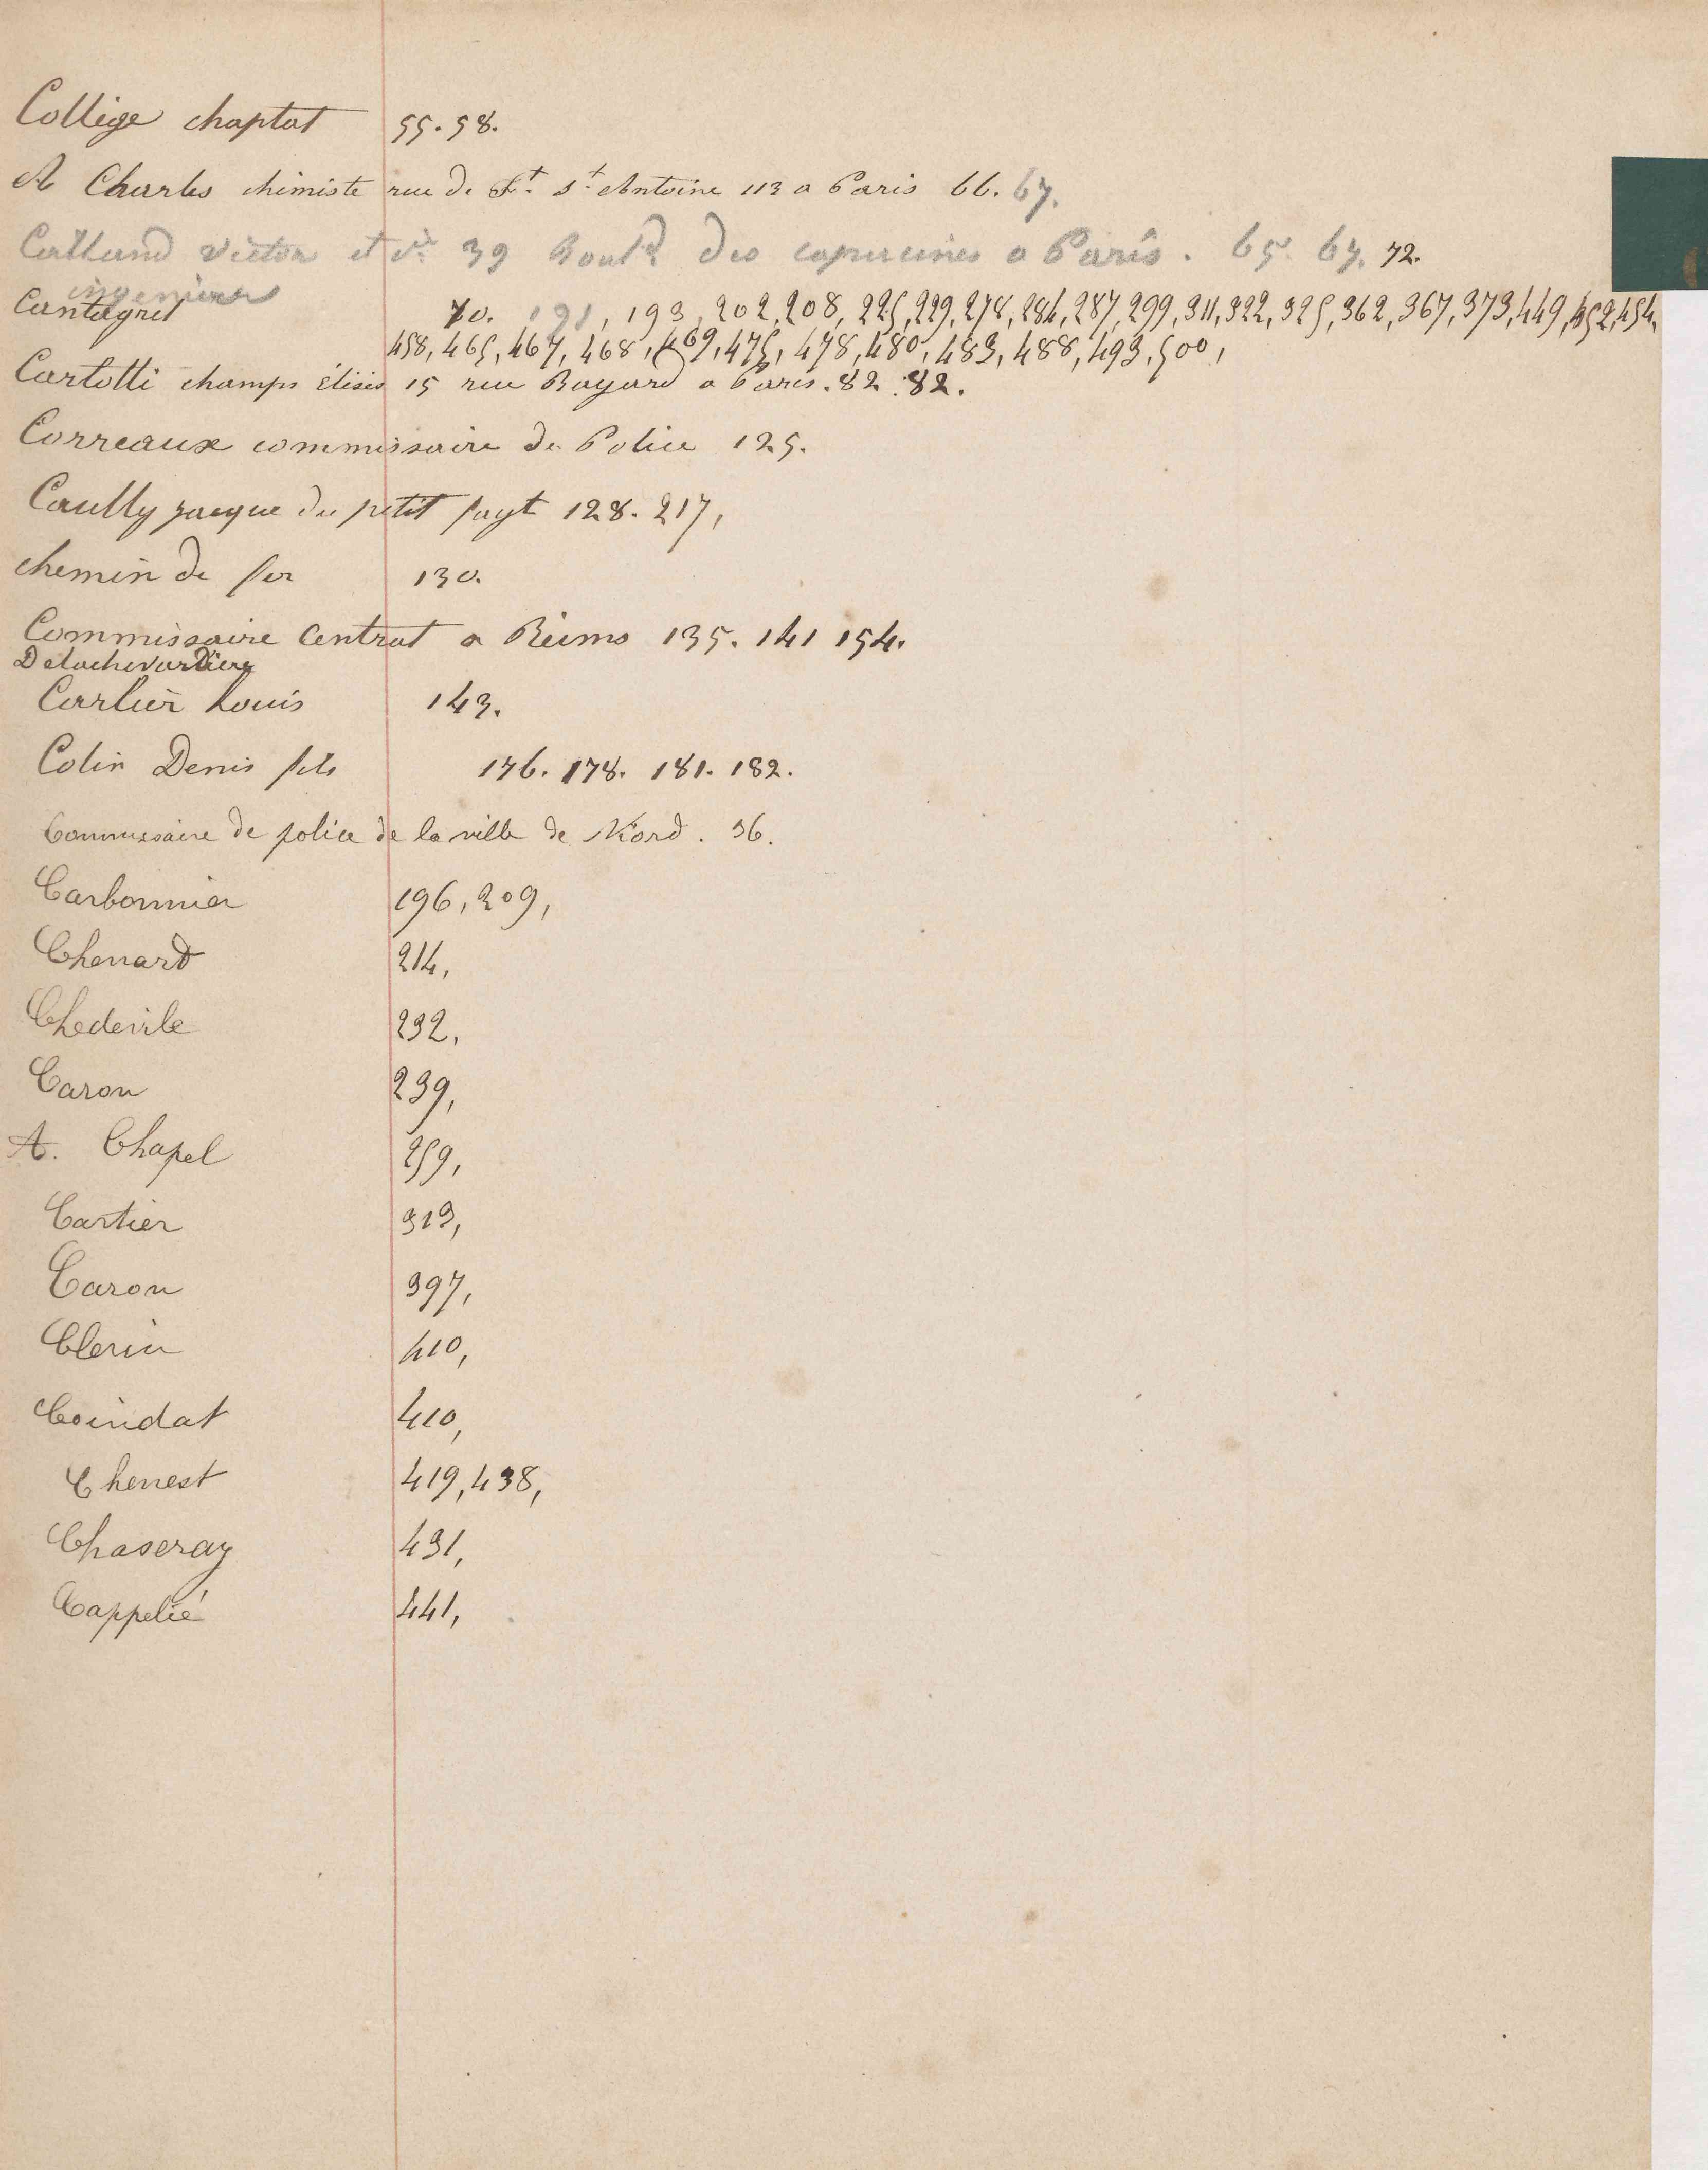 Collige chaptal 55. 58.
A Charles chimiste rue de Ft St Antoine 113 a Paris 66. 67.
Cattand Victor et Cie 39 Bould des capucines a Paris. 65. 67. 72.
ingenieur
Cantagrel 70. 191, 193, 202, 208, 225, 229, 278, 284, 287, 299, 311, 322, 325, 362, 367, 373, 449, 452, 454,
458, 465, 467, 468, 469, 475, 478, 480, 483, 488, 493, 500,
Carlotti champs élisés 15 rue Bayard a Paris. 82. 82.
Correaux commissaire de Police 125.
Caully jacque du petit fayt 128. 217,
chemin de fer 130.
Commissaire Central a Reims 135. 141 154.
Delachevardiere
Carlier Louis 143.
Colin Denis fils 176. 178. 181. 182.
Commissaire de police de la ville de Niord. 36.
Carbonnier 196, 209,
Chenard 214,
Chedevile 232,
Caron 239,
A. Chapel 259,
Cartier 313,
Caron 397,
Clerin 410,
Coindat 410,
Chenest 419, 438,
Chaseray 431,
Cappelié 441,